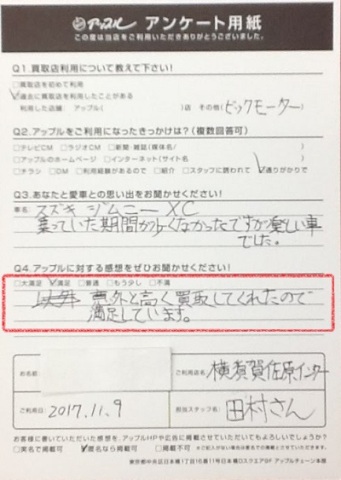 アップル アンケート用紙
この度は当店をご利用いただきありがとうございました。
Q1.買取店利用について教えて下さい!
□買取店を初めて利用
☑過去に買取店を利用したことがある
利用した店舗: アップル( )店 その他(ビックモーター)
Q2.アップルをご利用になったきっかけは?(複数回答可)
□テレビCM □ラジオCM □新聞・雑誌(媒体名/ )
□アップルのホームページ □インターネット(サイト名 )
□チラシ □DM □利用経験があるので □紹介 □スタッフに誘われて ☑通りがかりで
Q3.あなたと愛車との思い出をお聞かせください!
車名 スズキ ジムニー XC
乗っていた期間が少くなかったですが楽しい車
でした。
Q4.アップルに対する感想をぜひお聞かせください!
□大満足 ☑満足 □普通 □もう少し □不満
意外と高く買取してくれたので
満足しています。
お名前
ご利用店名 横須賀佐原インター
ご利用日 2017.11.9
担当スタッフ名 田村さん
お客様に書いていただいた感想を、アップルHPや広告に掲載させていただいてもよろしいでしょうか?
□実名で掲載可 ☑匿名なら掲載可 □掲載不可 ※ご記入がない場合は匿名での掲載とさせていただきます。
東京都中央区日本橋1丁目16番11号日本橋Dスクエア5F アップルチェーン本部